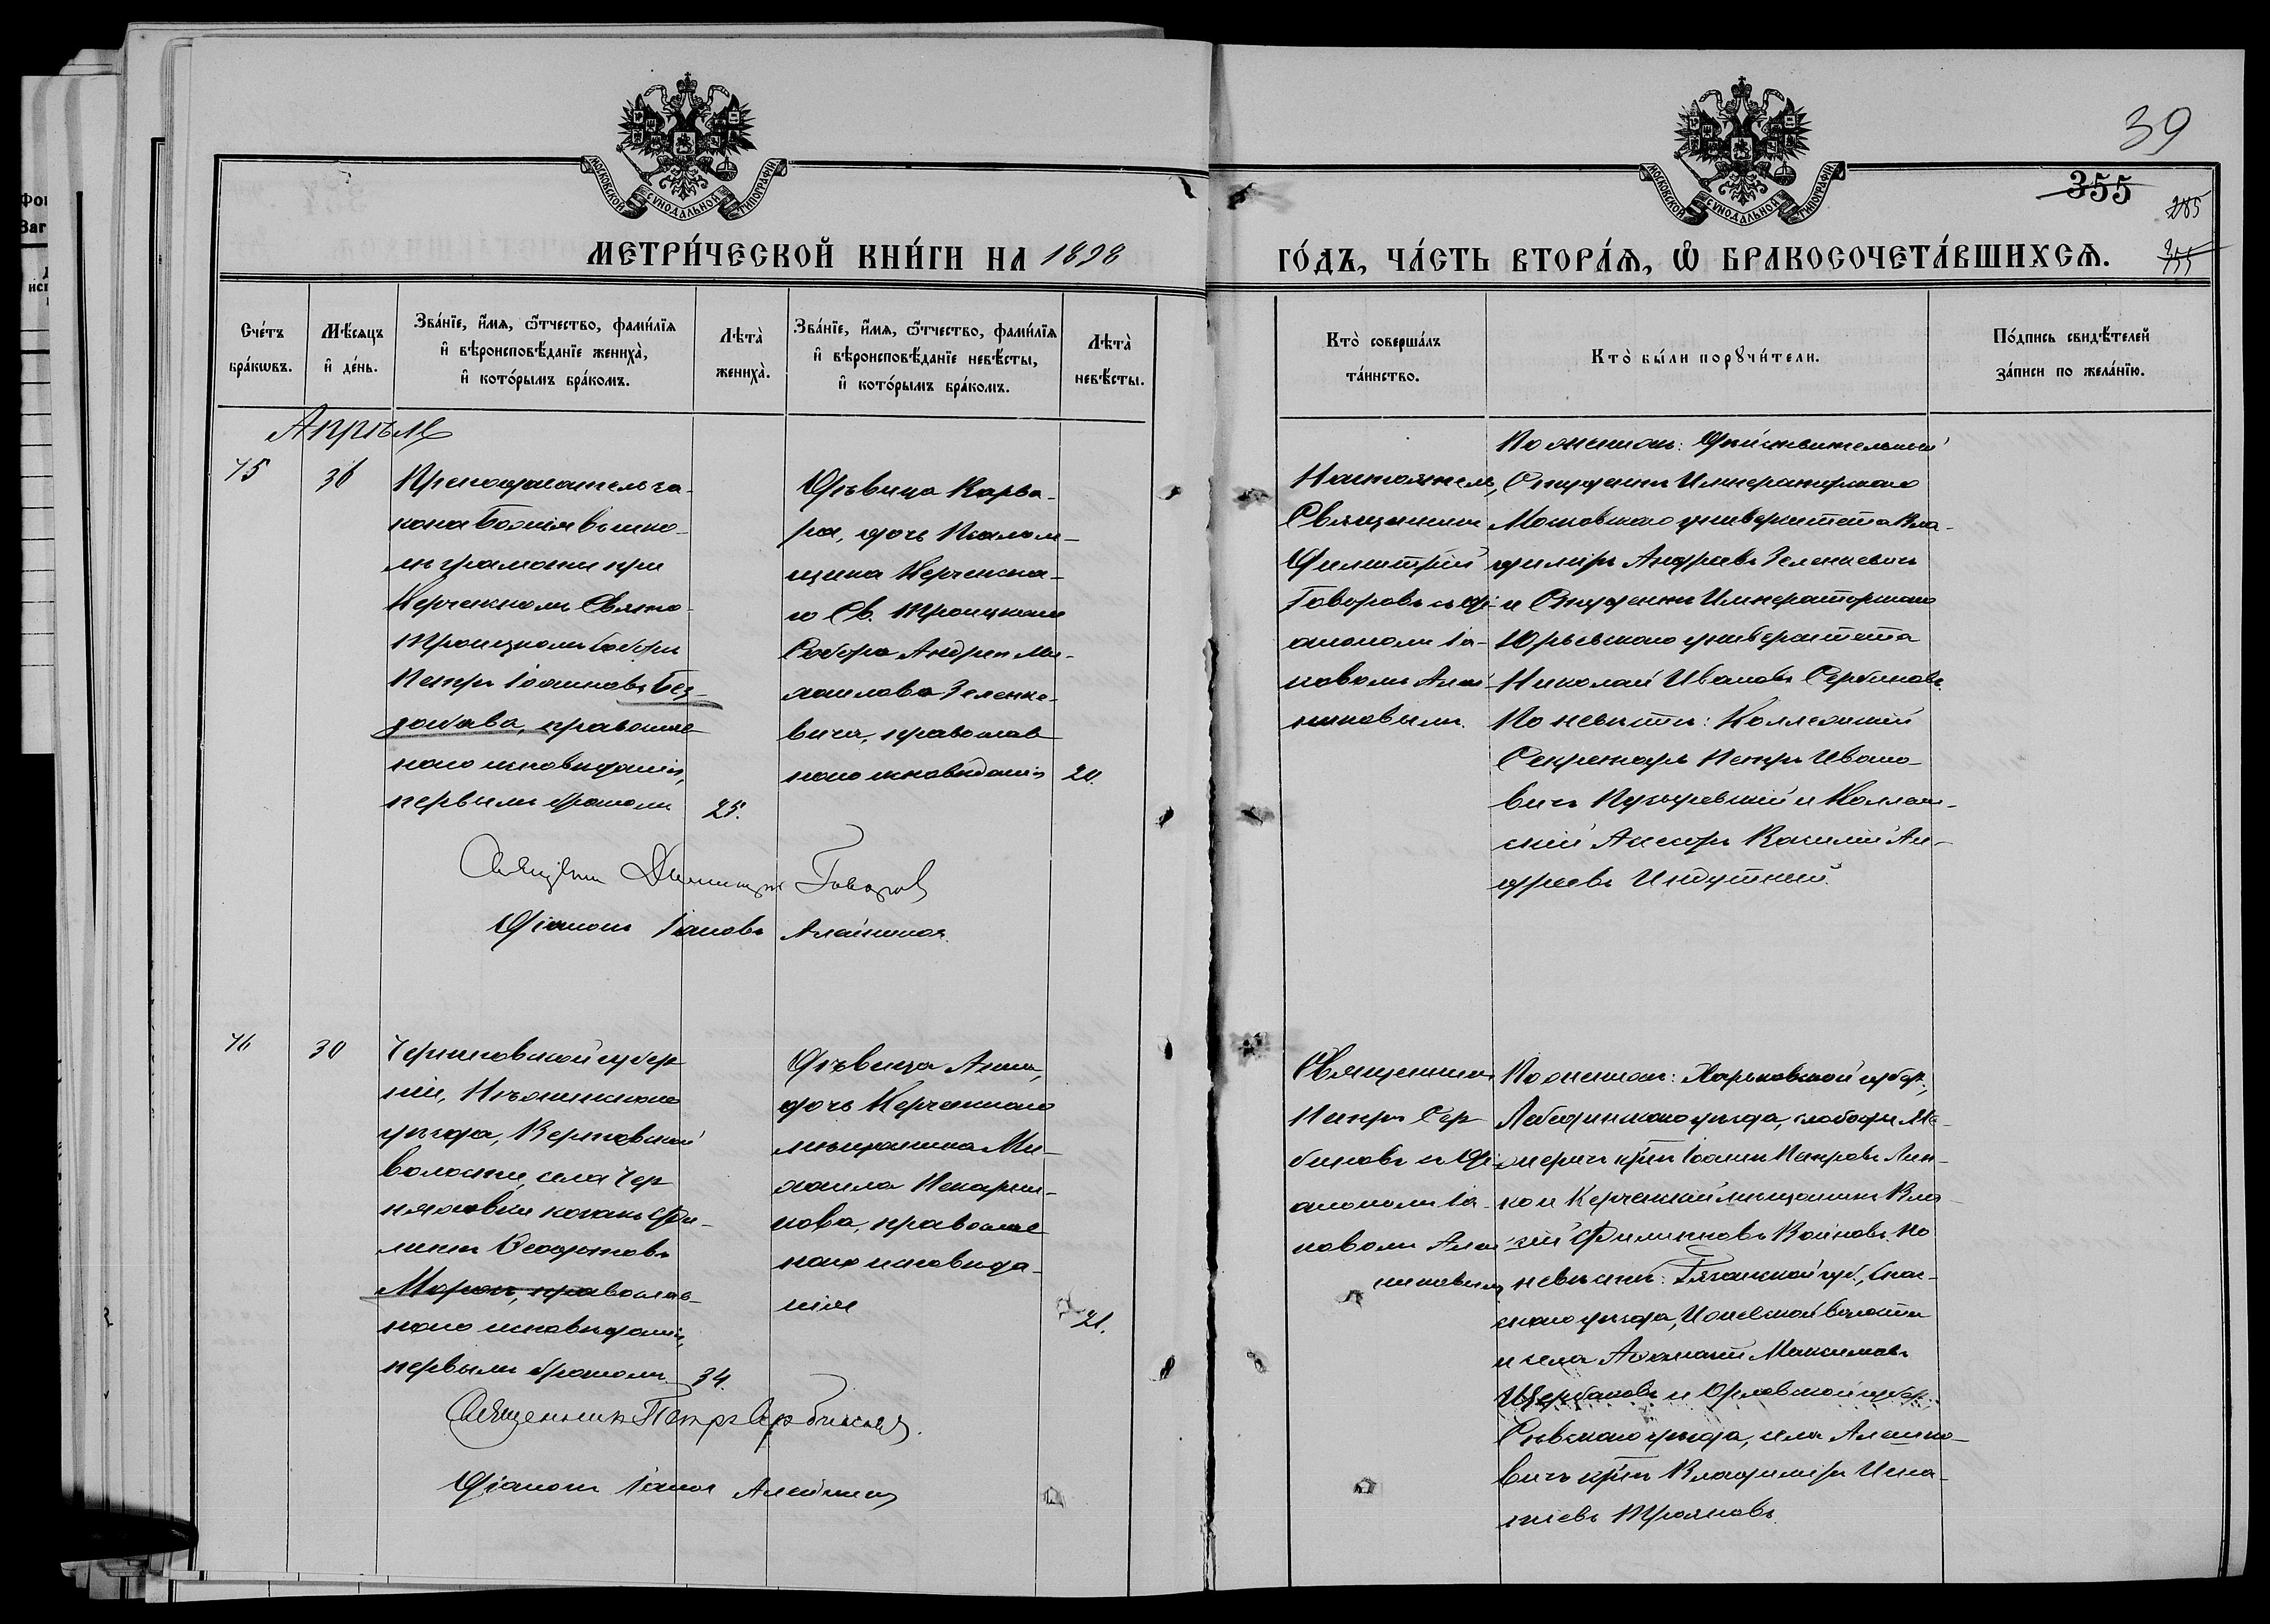 39
355
285
355
МОСКОВСКОЙ СѴНОДАЛЬНОЙ ТИПОГРАФІИ
МОСКОВСКОЙ СѴНОДАЛЬНОЙ ТИПОГРАФІИ
МЕТРИ́ЧЕСКОЙ КНИ́ГИ НА 1898
ГО́ДЪ, ЧА́СТЬ ВТОРА́Я, Ѡ БРАКОСОЧЕТА́ВШИХСЯ.
Сче́тъ бра́кѡвъ.
Мѣ́сяцъ и де́нь.
Зва́нїе, и́мя, ѻ́тчество, фами́лїя
и вѣроисповѣ́данїе жениха̀,
и кото́рымъ бра́комъ.
Лѣта̀ жениха̀.
Зва́нїе, и́мя, ѻ́тчество, фами́лїя
и вѣроисповѣ́данїе невѣ́сты,
и кото́рымъ бра́комъ.
Лѣта̀ невѣ́сты.
Кто̀ соверша́лъ та́инство.
Кто̀ бы́ли порꙋчи́тели.
По́дпись свидѣ́телей
за́писи по жела́нїю.
Апрѣль
45
Преподаватель за-
кона Божія въ шко-
лѣ грамоты при
Керченскомъ Свято-
Троицкомъ Соборѣ
Петръ Іоанновъ Без-
православ
наго исповѣданія,
первымъ бракомъ
25.
Дѣвица Варва-
ра, дочь Псалом-
щика Керченска-
го Св. Троицкаго
Собора Андрея Ми-
хаилова Зеленке-
вича, православ
наго исповѣданія
20.
Настоятель,
Священникъ
Димитрій
Говоровъ съ Ді-
акономъ Іа-
ковомъ Алей-
никовымъ.
По женихѣ: Дѣйствительный
Студентъ Императорскаго
Московскаго университета Вла-
димiръ Андреевъ Зеленкевичъ
и Студентъ Императорскаго
Юрьевскаго университета
Николай Ивановъ Сербиновъ.
По невѣстѣ: Коллежскій
Секретарь Петръ Ивано-
вичъ и Коллеж-
скій Ассесоръ Василій Ан-
дреевъ
Священникъ Димитрій Говоровъ
Діаконъ Іаковъ Алейниковъ.
46
30
Черниговской губер
ніи, Нѣжинскаго
уѣзда, Вертіевской
волости, села Чер
няховки козакъ Фи-
липпъ Ѳеодотовъ
Морозъ, православ-
наго исповѣданія,
первымъ бракомъ
34.
Дѣвица Анна,
дочь Керченскаго
мѣщанина Ми-
хаила
нова, православ
наго исповѣда-
нія
21.
Священникъ
Петръ Сер
биновъ съ Ді-
акономъ Іа-
ковомъ Алей
никовымъ
По женихѣ: Харьковской губер.,
Лебединскаго уѣзда, слободы Ме-
жеричъ крест. Іоаннъ Петровъ
и Керченскій мѣщанинъ Вла-
сій Филипповъ Воиновъ. По
невѣстѣ: Рязанской губ., Спас-
скаго уѣзда, Ижевской волости
и села Максимовъ
Щербаковъ и Орловской губер.
Сѣвскаго уѣзда, села Алешко-
вичъ крест. Владиміръ Игна-
тіевъ Трояновъ.
Священникъ Петръ Сербиновъ.
Діаконъ Іаковъ Алейниковъ